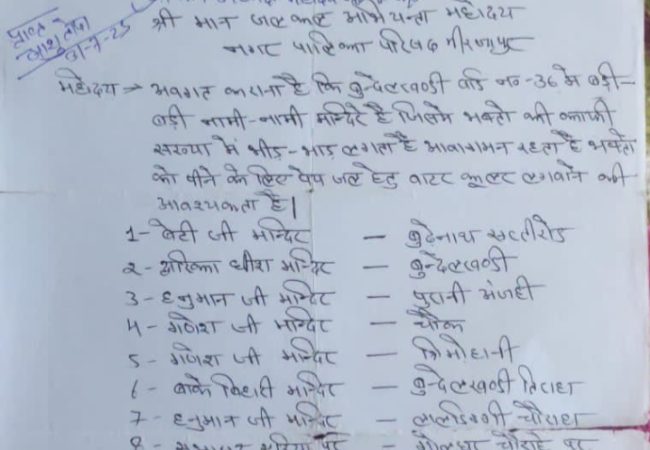 प्राप्त
31-7-25
श्री मान जलकल अभियन्ता महोदय
नगर पालिका परिषद मीरजापुर
महोदय → अवगत कराना है कि बुन्देलखण्डी वार्ड नं०-36 मे बड़ी-
बड़ी नामी-नामी मन्दिरे है जिसमे भक्तो की काफी
संख्या में भीड़-भाड़ लगता है आवागमन रहता है भक्तो
को पीने के लिए पेय जल हेतु वाटर कूलर लगवाने की
आवश्यकता है|
1- बेटी जी मन्दिर - बुढेनाथ सत्तीरोड
2- द्वारिका धीश मन्दिर - बुन्देलखण्डी
3- हनुमान जी मन्दिर - पुरानी अंजही
4- गणेश जी मन्दिर - चौक
5- गणेश जी मन्दिर - त्रिमोहानी
6- बाके बिहारी मन्दिर - बुन्देलखण्डी तिराहा
7- हनुमान जी मन्दिर - ललडिग्गी चौराहा
8- - चौराहे पर